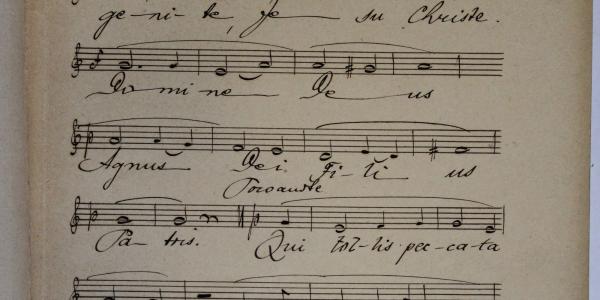 ge-ni-te, Je su Christe.
Do mi ne De us
Agnus Dei. Fi-li us
Pa-tris. Qui tol-lis pec-ca-ta